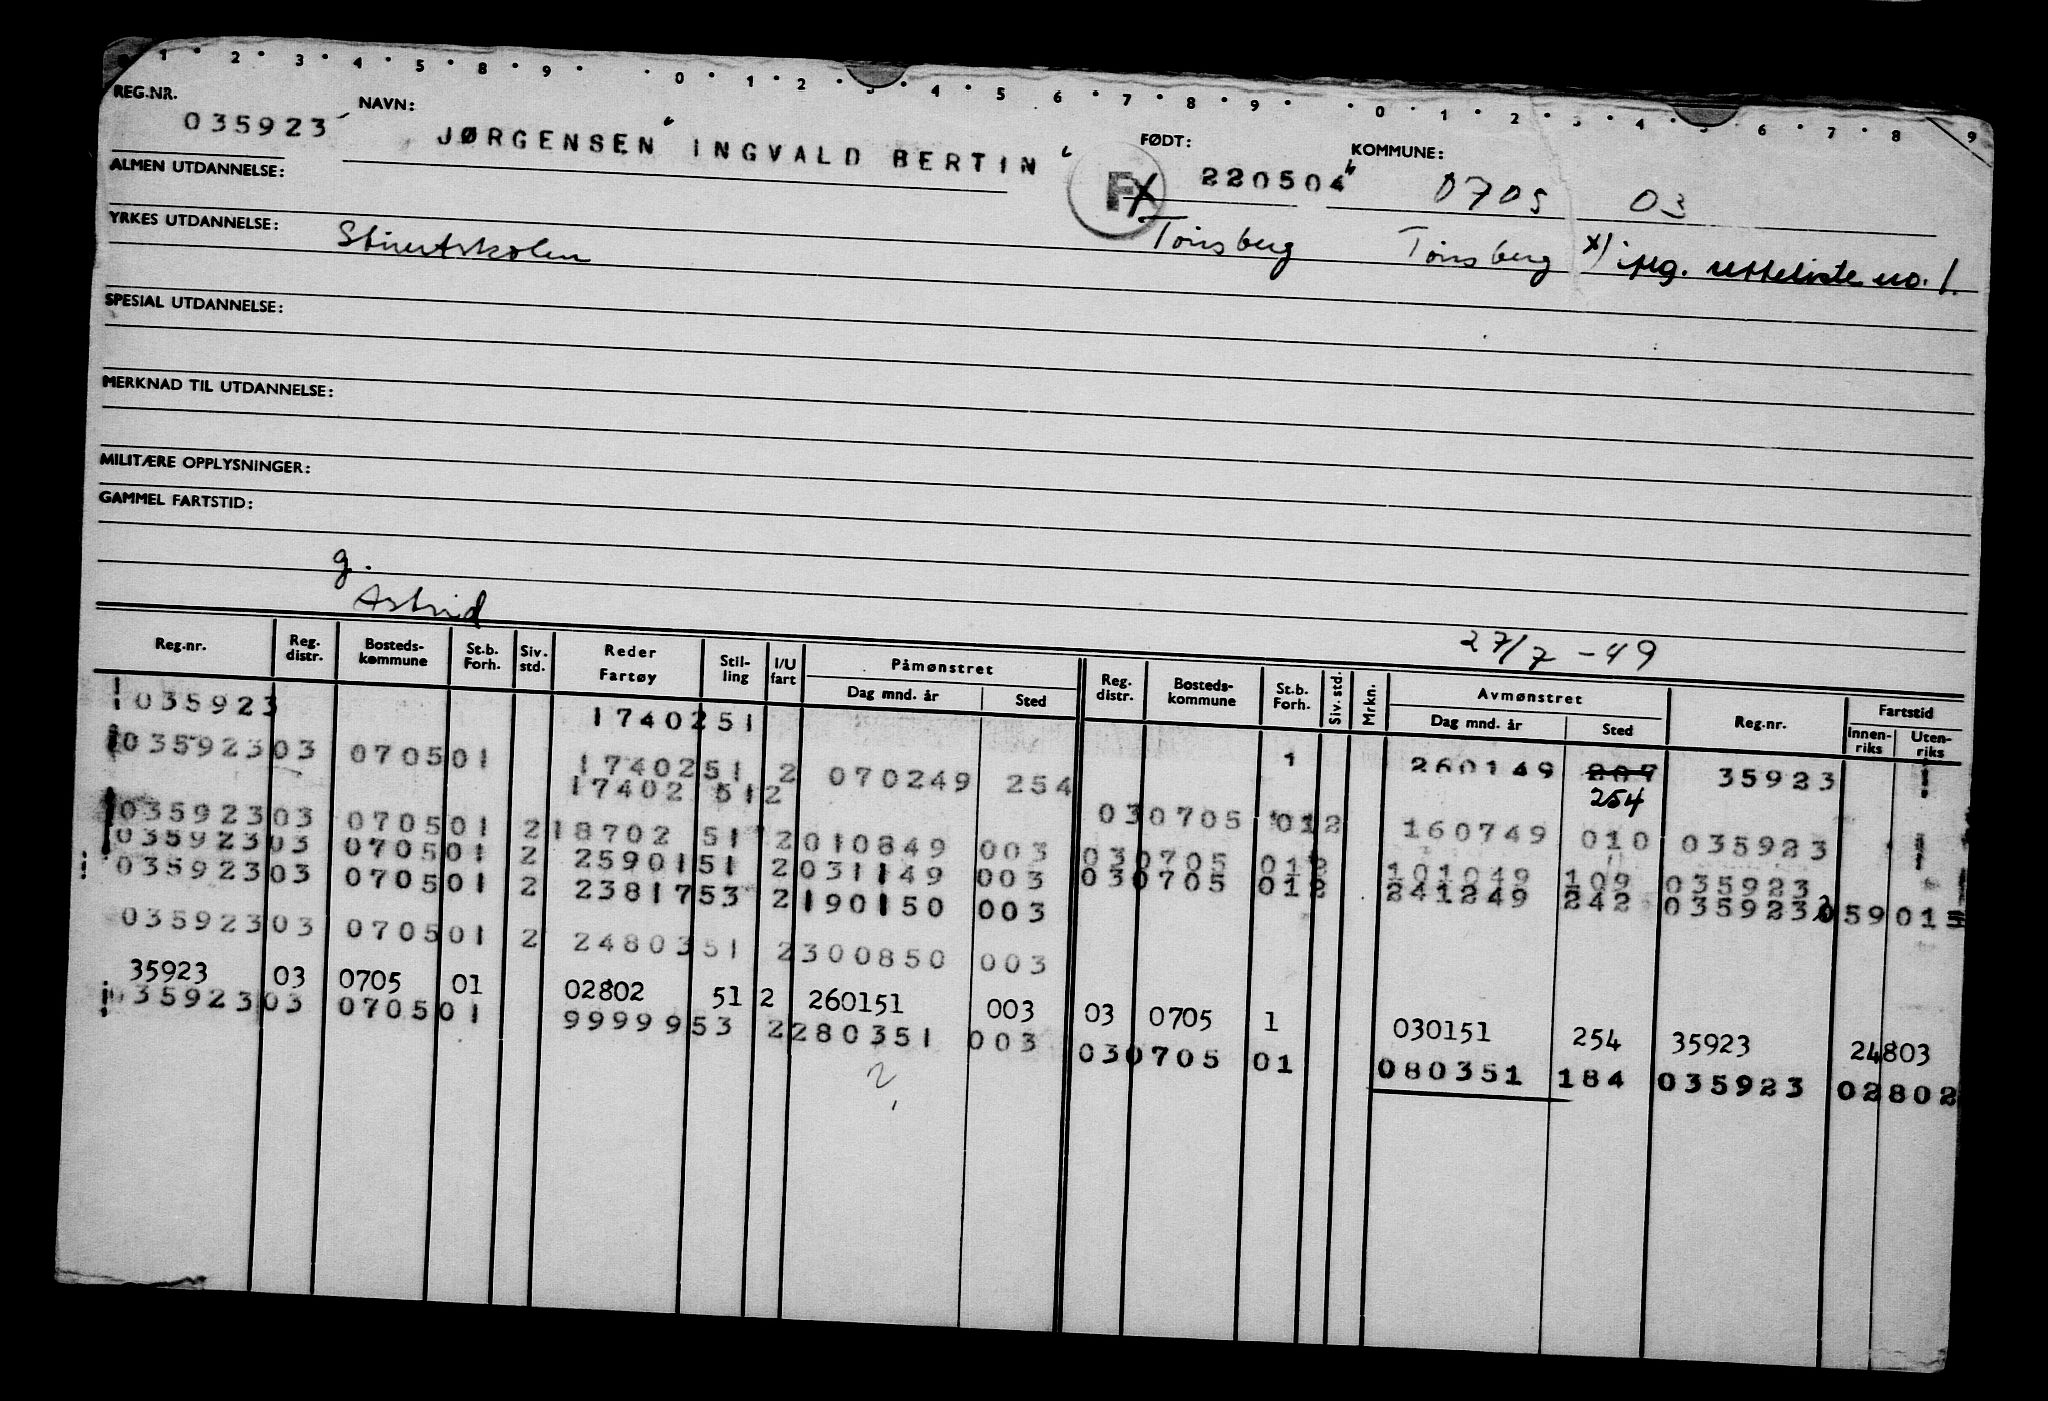 1 • 2 • 3 • 4 • 5 • 8 • 9 • • 0 • 1 • 2 • 3 • 4 • 5 6 • 7 • 8 • 9 • • 0 • 1 • 2 • 3 • 4 • 5 • 6 • 7 • 8 9
REG.NR. 035923 NAVN: JØRGENSEN INGVALD BERTIN FØDT: 220504 KOMMUNE: 0705 03
ALMEN UTDANNELSE:
YRKES UTDANNELSE: Stuertskolen Tønsberg Tønsberg x) iflg. retteliste no. 1.
SPESIAL UTDANNELSE:
MERKNAD TIL UTDANNELSE:
MILITÆRE OPPLYSNINGER:
GAMMEL FARTSTID:
g.
Astrid
27/7 -49
Reg.nr. Reg. distr. Bosteds-kommune St.b. Forh. Siv. std. Reder Fartøy Stil-ling I/U fart Påmønstret Dag mnd. år Sted Reg. distr. Bosteds-kommune St.b. Forh. Siv. std. Mrkn. Avmønstret Dag mnd. år Sted Reg.nr. Fartstid Innen-riks Uten-riks
035923 1740251
03592303 070501 1740251 2 070249 254 1 260149 207 35923
17402 512 254
03592303 070501 218702 51 2010849 003 030705 012 160749 010 035923
03592303 070501 2 2590151 2031149 003 030705 012 101049 109 035923
03592303 070501 2 2381753 2190150 003 030705 012 241249 242 035923 059015
03592303 070501 2 2480351 2300850 003
35923 03 0705 01 02802 51 2 260151 003 03 0705 1 030151 254 35923 24803
03592303 070501 9999953 2280351 003 030705 01 080351 184 035923 02802
2